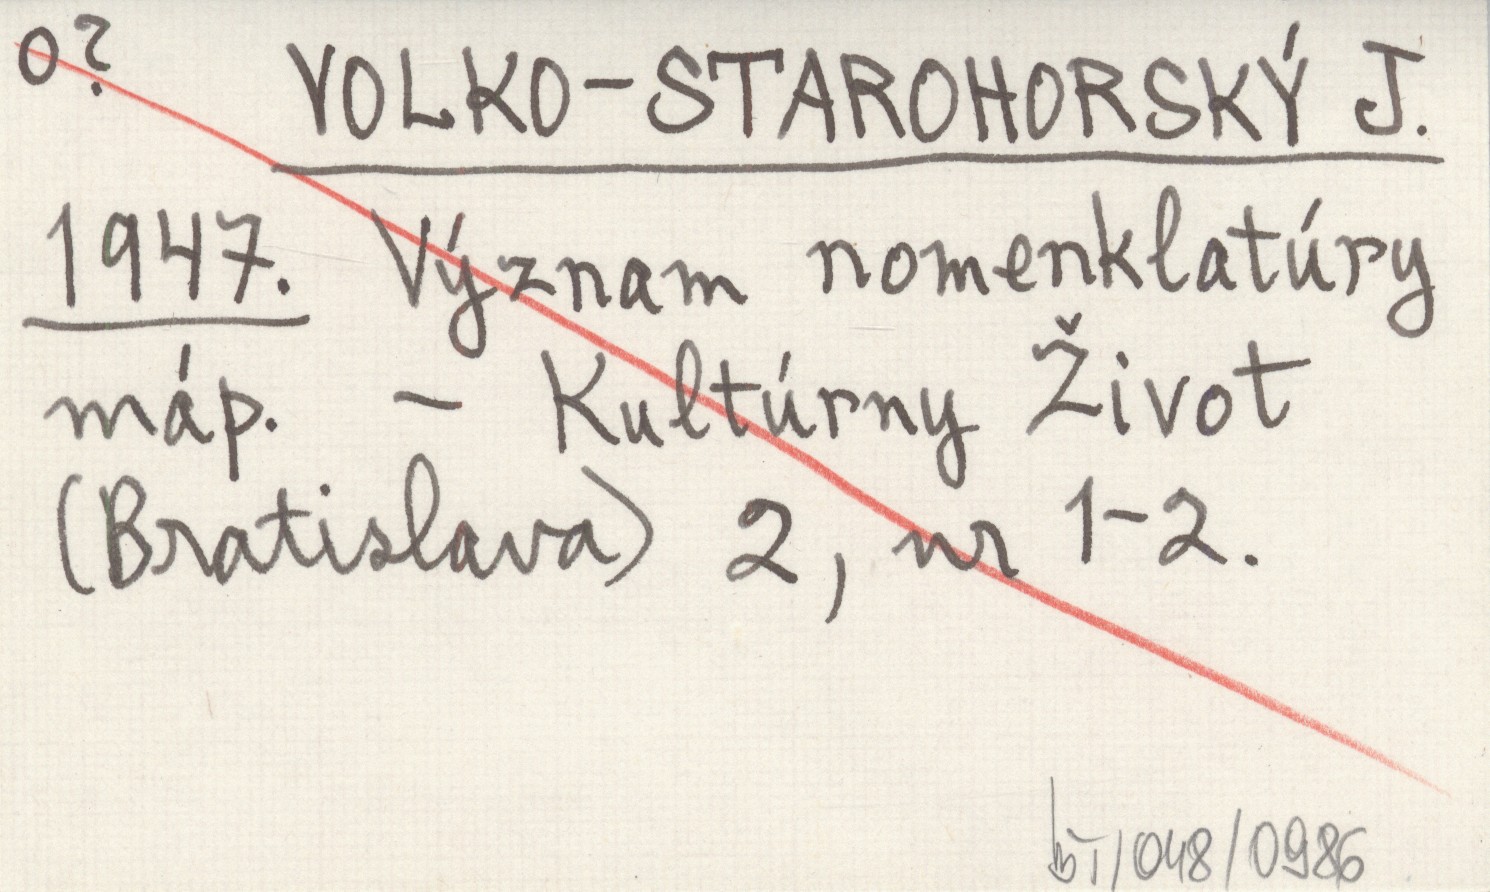 o? VOLKO-STAROHORSKÝ J.
1947. Význam nomenklatúry
máp. - Kultúrny Život
(Bratislava) 2, nr 1-2.
/048/0986